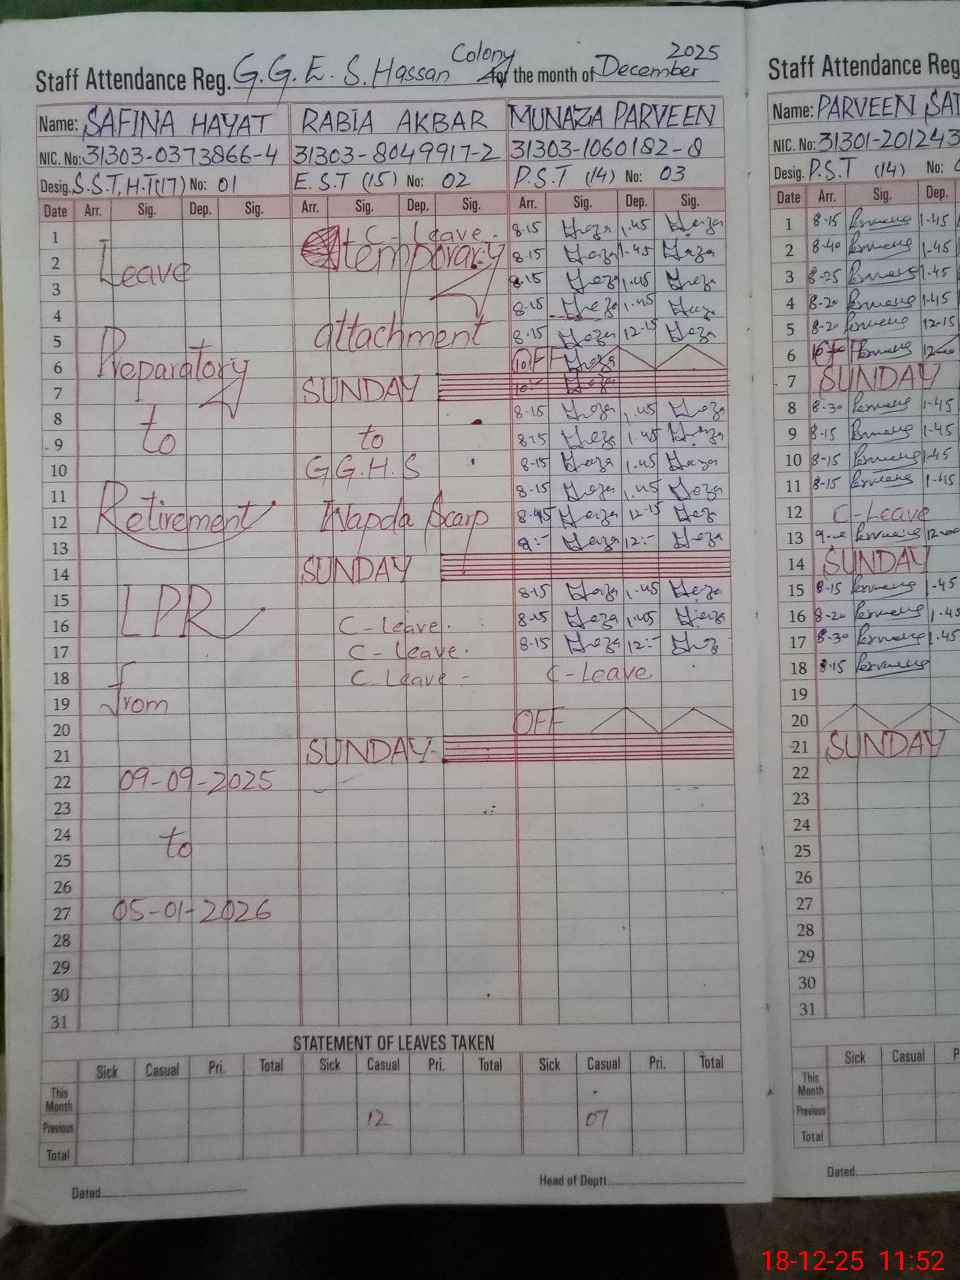 2025
Staff Attendance Reg. G.G.E.S. Hassan Colony for the month of December
Name: SAFINA HAYAT RABIA AKBAR MUNAZA PARVEEN
NIC. No: 31303-0373866-4 31303-8049917-2 31303-1060182-8
Desig. S.S.T.H.T(17) No: 01 E.S.T (15) No: 02 P.S.T (14) No: 03
Date Arr. Sig. Dep. Sig. Arr. Sig. Dep. Sig. Arr. Sig. Dep. Sig.
1 C-Leave. 8.15 1.45
2 Leave temporary 8.15 1.45
3 8.15 1.45
4 8.15 1.45
5 attachment 8.15 12-15
6 Preparatory OFF
7 SUNDAY
8 to 8.15 1.45
9 to 8.15 1.45
10 G.G.H.S 8.15 1.45
11 8.15 1.45
12 Retirement Wapda Scarp 8.45 12-15
13 9:- 12:-
14 SUNDAY
15 LPR 8.15 1.45
16 C-Leave. 8.15 1.45
17 C-Leave. 8.15 12:-
18 C Leave - C-Leave
19 from
20 OFF
21 SUNDAY
22 09-09-2025
23
24 to
25
26
27 05-01-2026
28
29
30
31
STATEMENT OF LEAVES TAKEN
Sick Casual Pri. Total Sick Casual Pri. Total Sick Casual Pri. Total
This Month
Previous 12 07
Total
Dated Head of Deptt.
Staff Attendance Reg
Name: PARVEEN
NIC. No: 31301-201243
Desig. P.S.T (14) No:
Date Arr. Sig. Dep.
1 8-15 1-45
2 8-40 1-45
3 8-25 1-45
4 8-20 1-45
5 8-20 12-15
6
7 SUNDAY
8 8-30 1-45
9 8-15 1-45
10 8-15 1-45
11 8-15 1-45
12 C-Leave
13
14 SUNDAY
15 8-15 1-45
16 8-20 1-45
17 8-30 1-45
18 8-15
19
20
21 SUNDAY
22
23
24
25
26
27
28
29
30
31
Sick Casual
This Month
Previous
Total
Dated
18-12-25 11:52